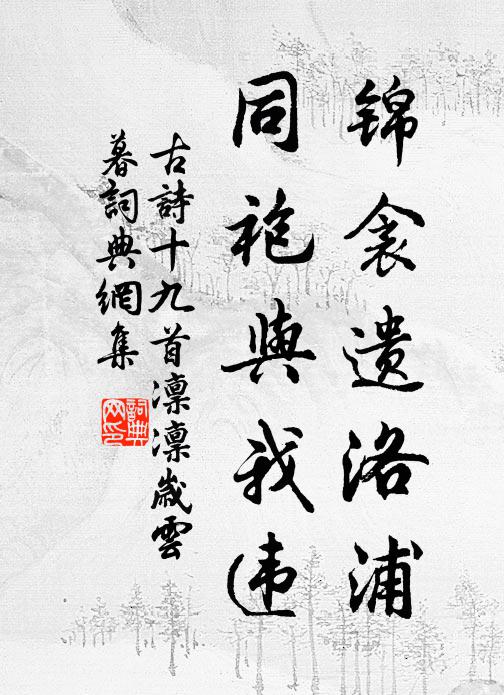 锦衾遗洛浦
同袍與我违
古詩十九首凛凛歲雲
暮詞典網集
詞典
网印